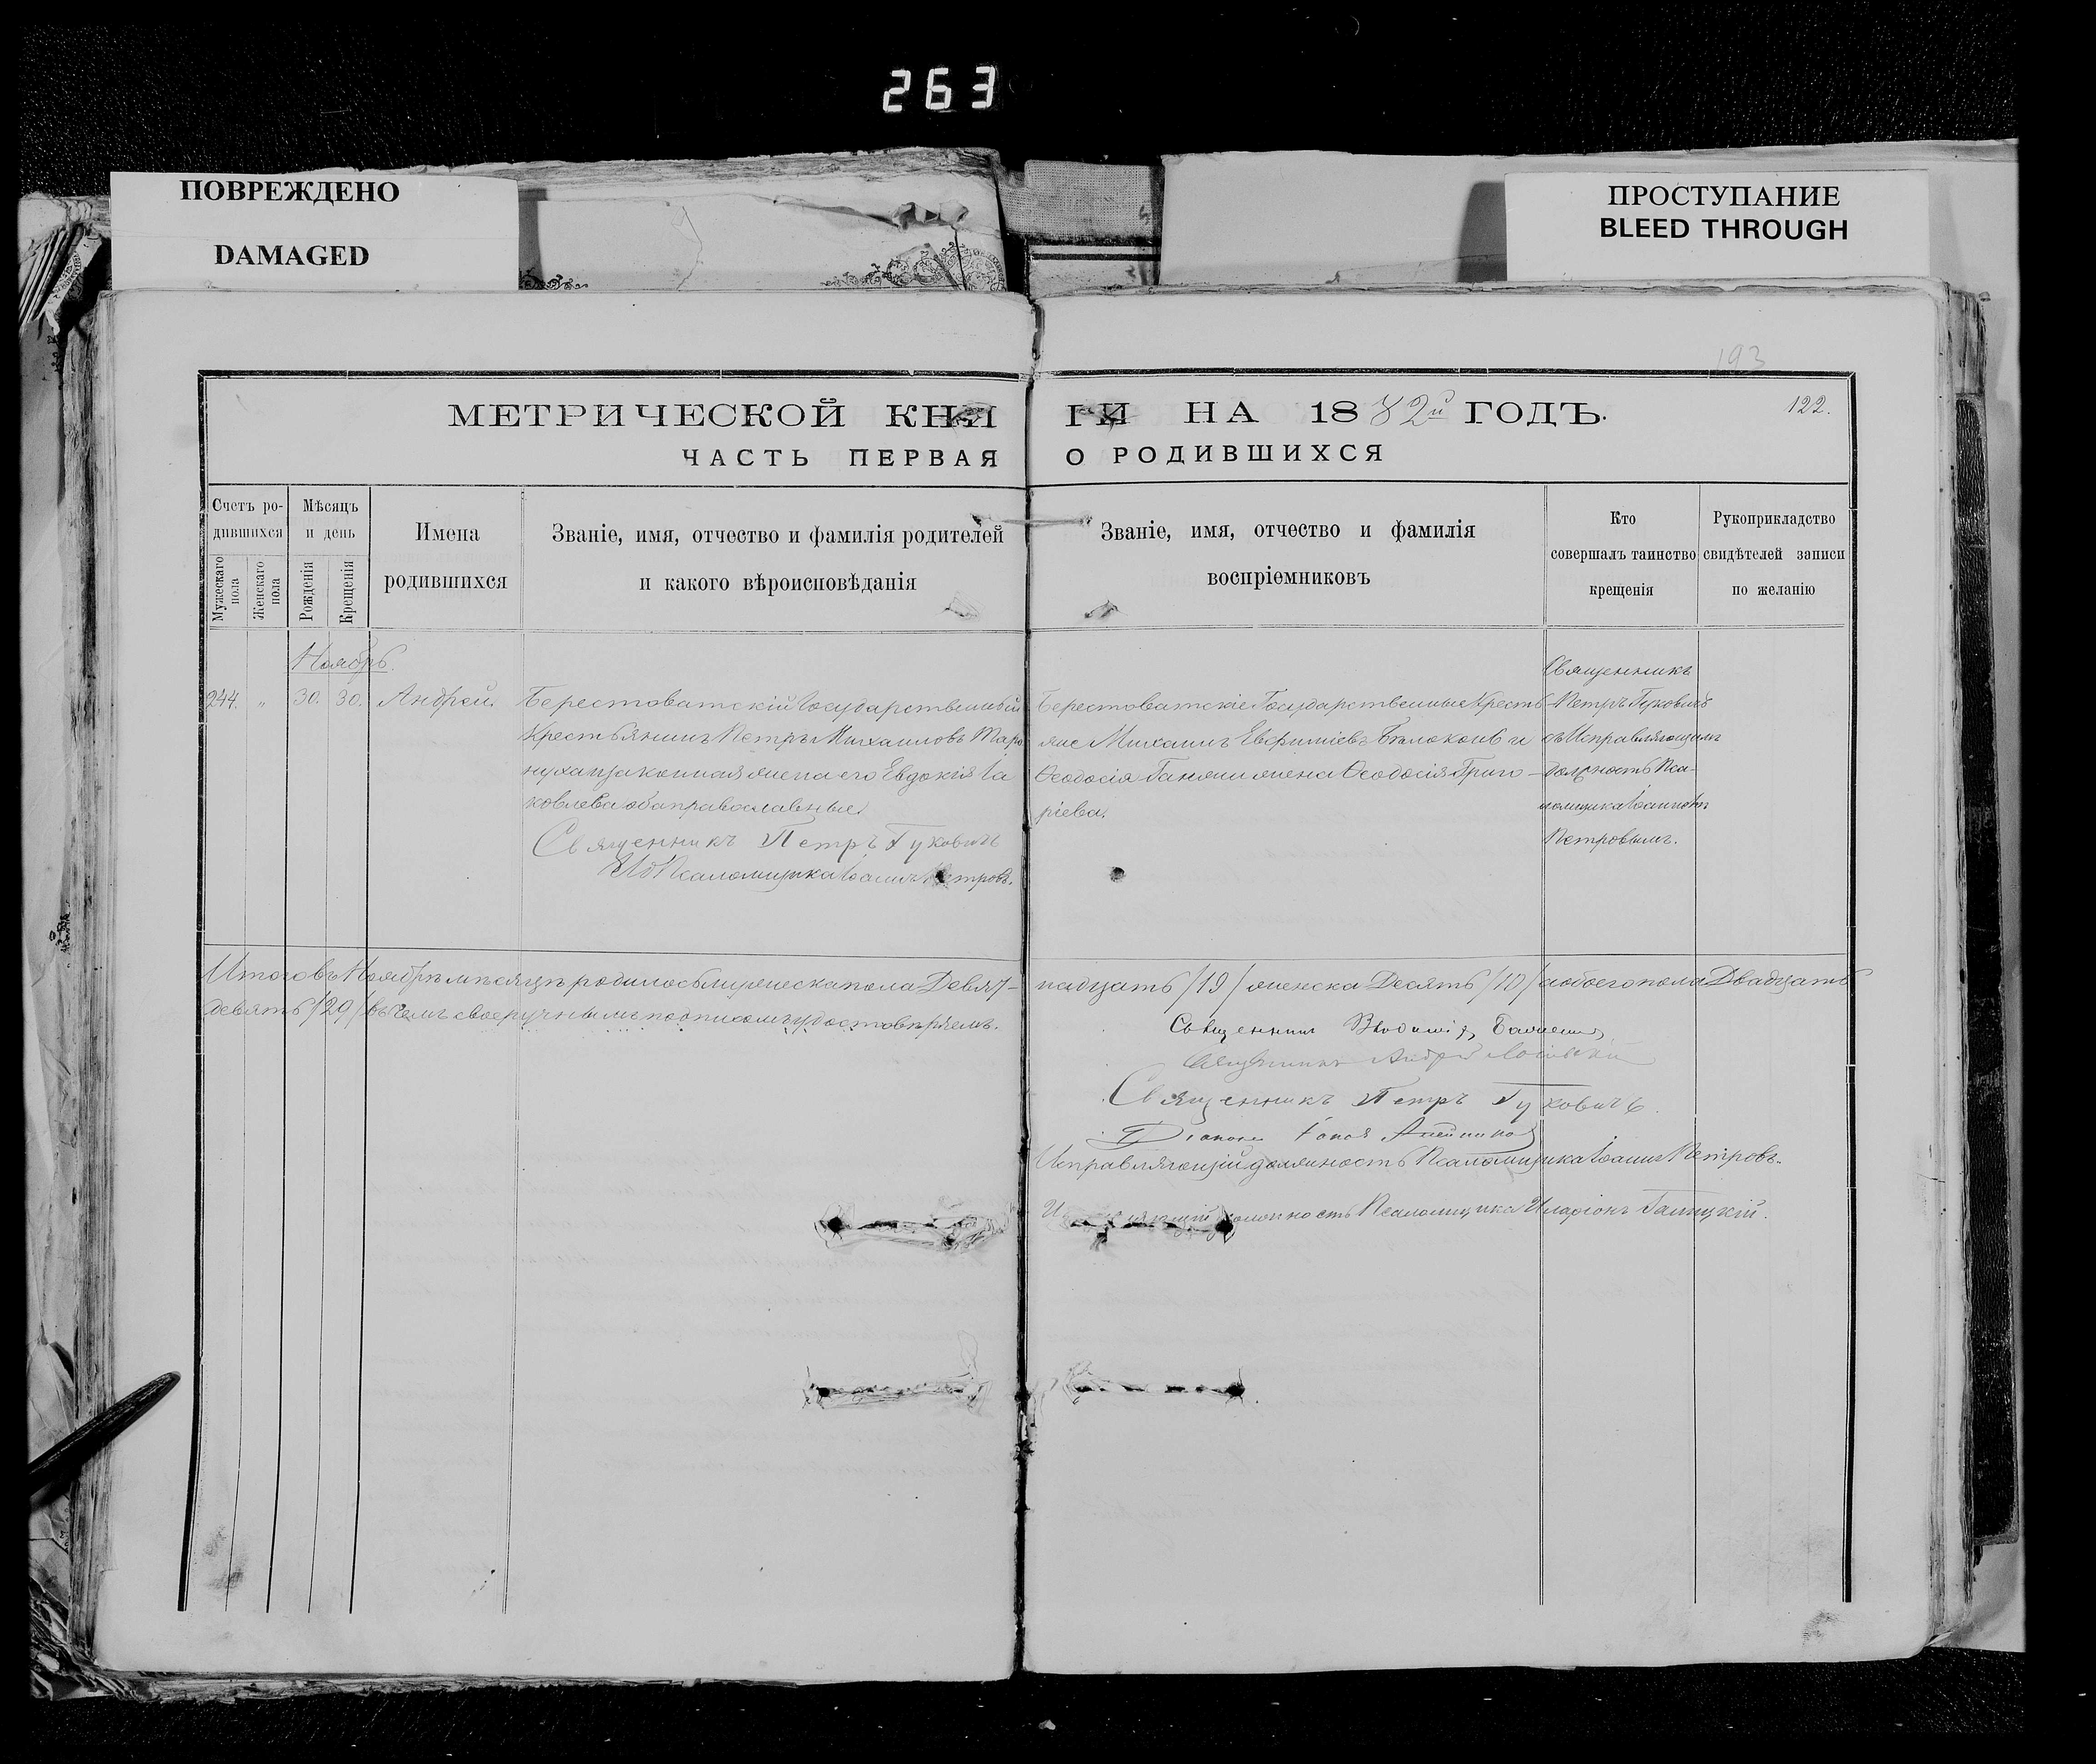 263
ПОВРЕЖДЕНО
DAMAGED
ПРОСТУПАНИЕ
BLEED THROUGH
193
МЕТРИЧЕСКОЙ КНИ
ГИ НА 1882й ГОДЪ.
122.
ЧАСТЬ ПЕРВАЯ
О РОДИВШИХСЯ
Счетъ ро-
дившихся
Мужескаго пола
Женскаго пола
Мѣсяцъ
и день
Рожденія
Крещенія
Имена
родившихся
Званіе, имя, отчество и фамилія родителей
и какого вѣроисповѣданія
Званіе, имя, отчество и фамилія
воспріемниковъ
Кто
совершалъ таинство
крещенія
Рукоприкладство
свидѣтелей записи
по желанію
Ноябрь.
244. " 30. 30. Андрей.
Берестоватскій Государственный
Крестьянинъ Петръ Михаиловъ Тара
нуха и законная жена его Евдокія Іа
ковлева оба православные.
Священникъ Петръ Гуковичъ
ИД Псаломщика Іоаннъ Петровъ.
Берестоватскіе Государственные Кресть-
яне Михаилъ Евфиміевъ Бѣлоконь и
Ѳеодосія жена Ѳеодосія Григо-
ріева.
Священникъ
Петръ Гуковичъ
съ Исправляющимъ
должность Пса-
ломщика Іоанномъ
Петровымъ.
Итого въ Ноябрѣ мѣсяцѣ родилось мужеска пола Девят-
надцать /19/ женска Десять /10/ а обоего пола Двадцать
девять /29/ въ чемъ своеручнымъ подписомъ удостовѣряемъ.
Священникъ
Священникъ Андрей
Священникъ Петръ Гуковичъ.
Діаконъ
Исправляющій должность Псаломщика Іоаннъ Петровъ.
должность Псаломщика Иларіонъ Галицкій.